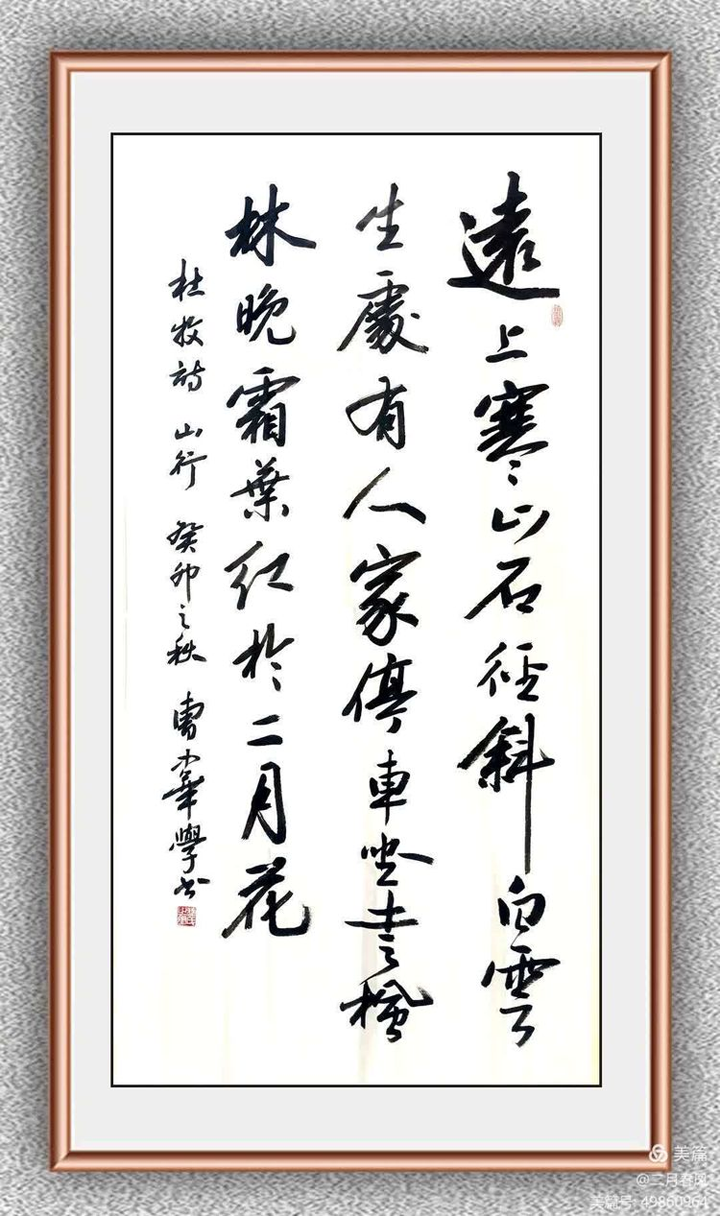 遠上寒山石徑斜白雲
生處有人家停車坐愛楓
林晚霜葉紅於二月花
杜牧詩 山行 癸卯之秋 曹小華學书
美篇
@二月春风
美篇号: 49860964